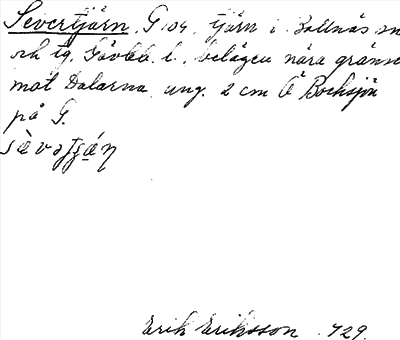 Severtjärn, G 104, tjärn i Bollnäs sn
och tg. Gävleb. l., belägen nära gränsen
mot Dalarna, ung. 2 cm Ö Bocksjön
på G.
Erik Eriksson 1929.